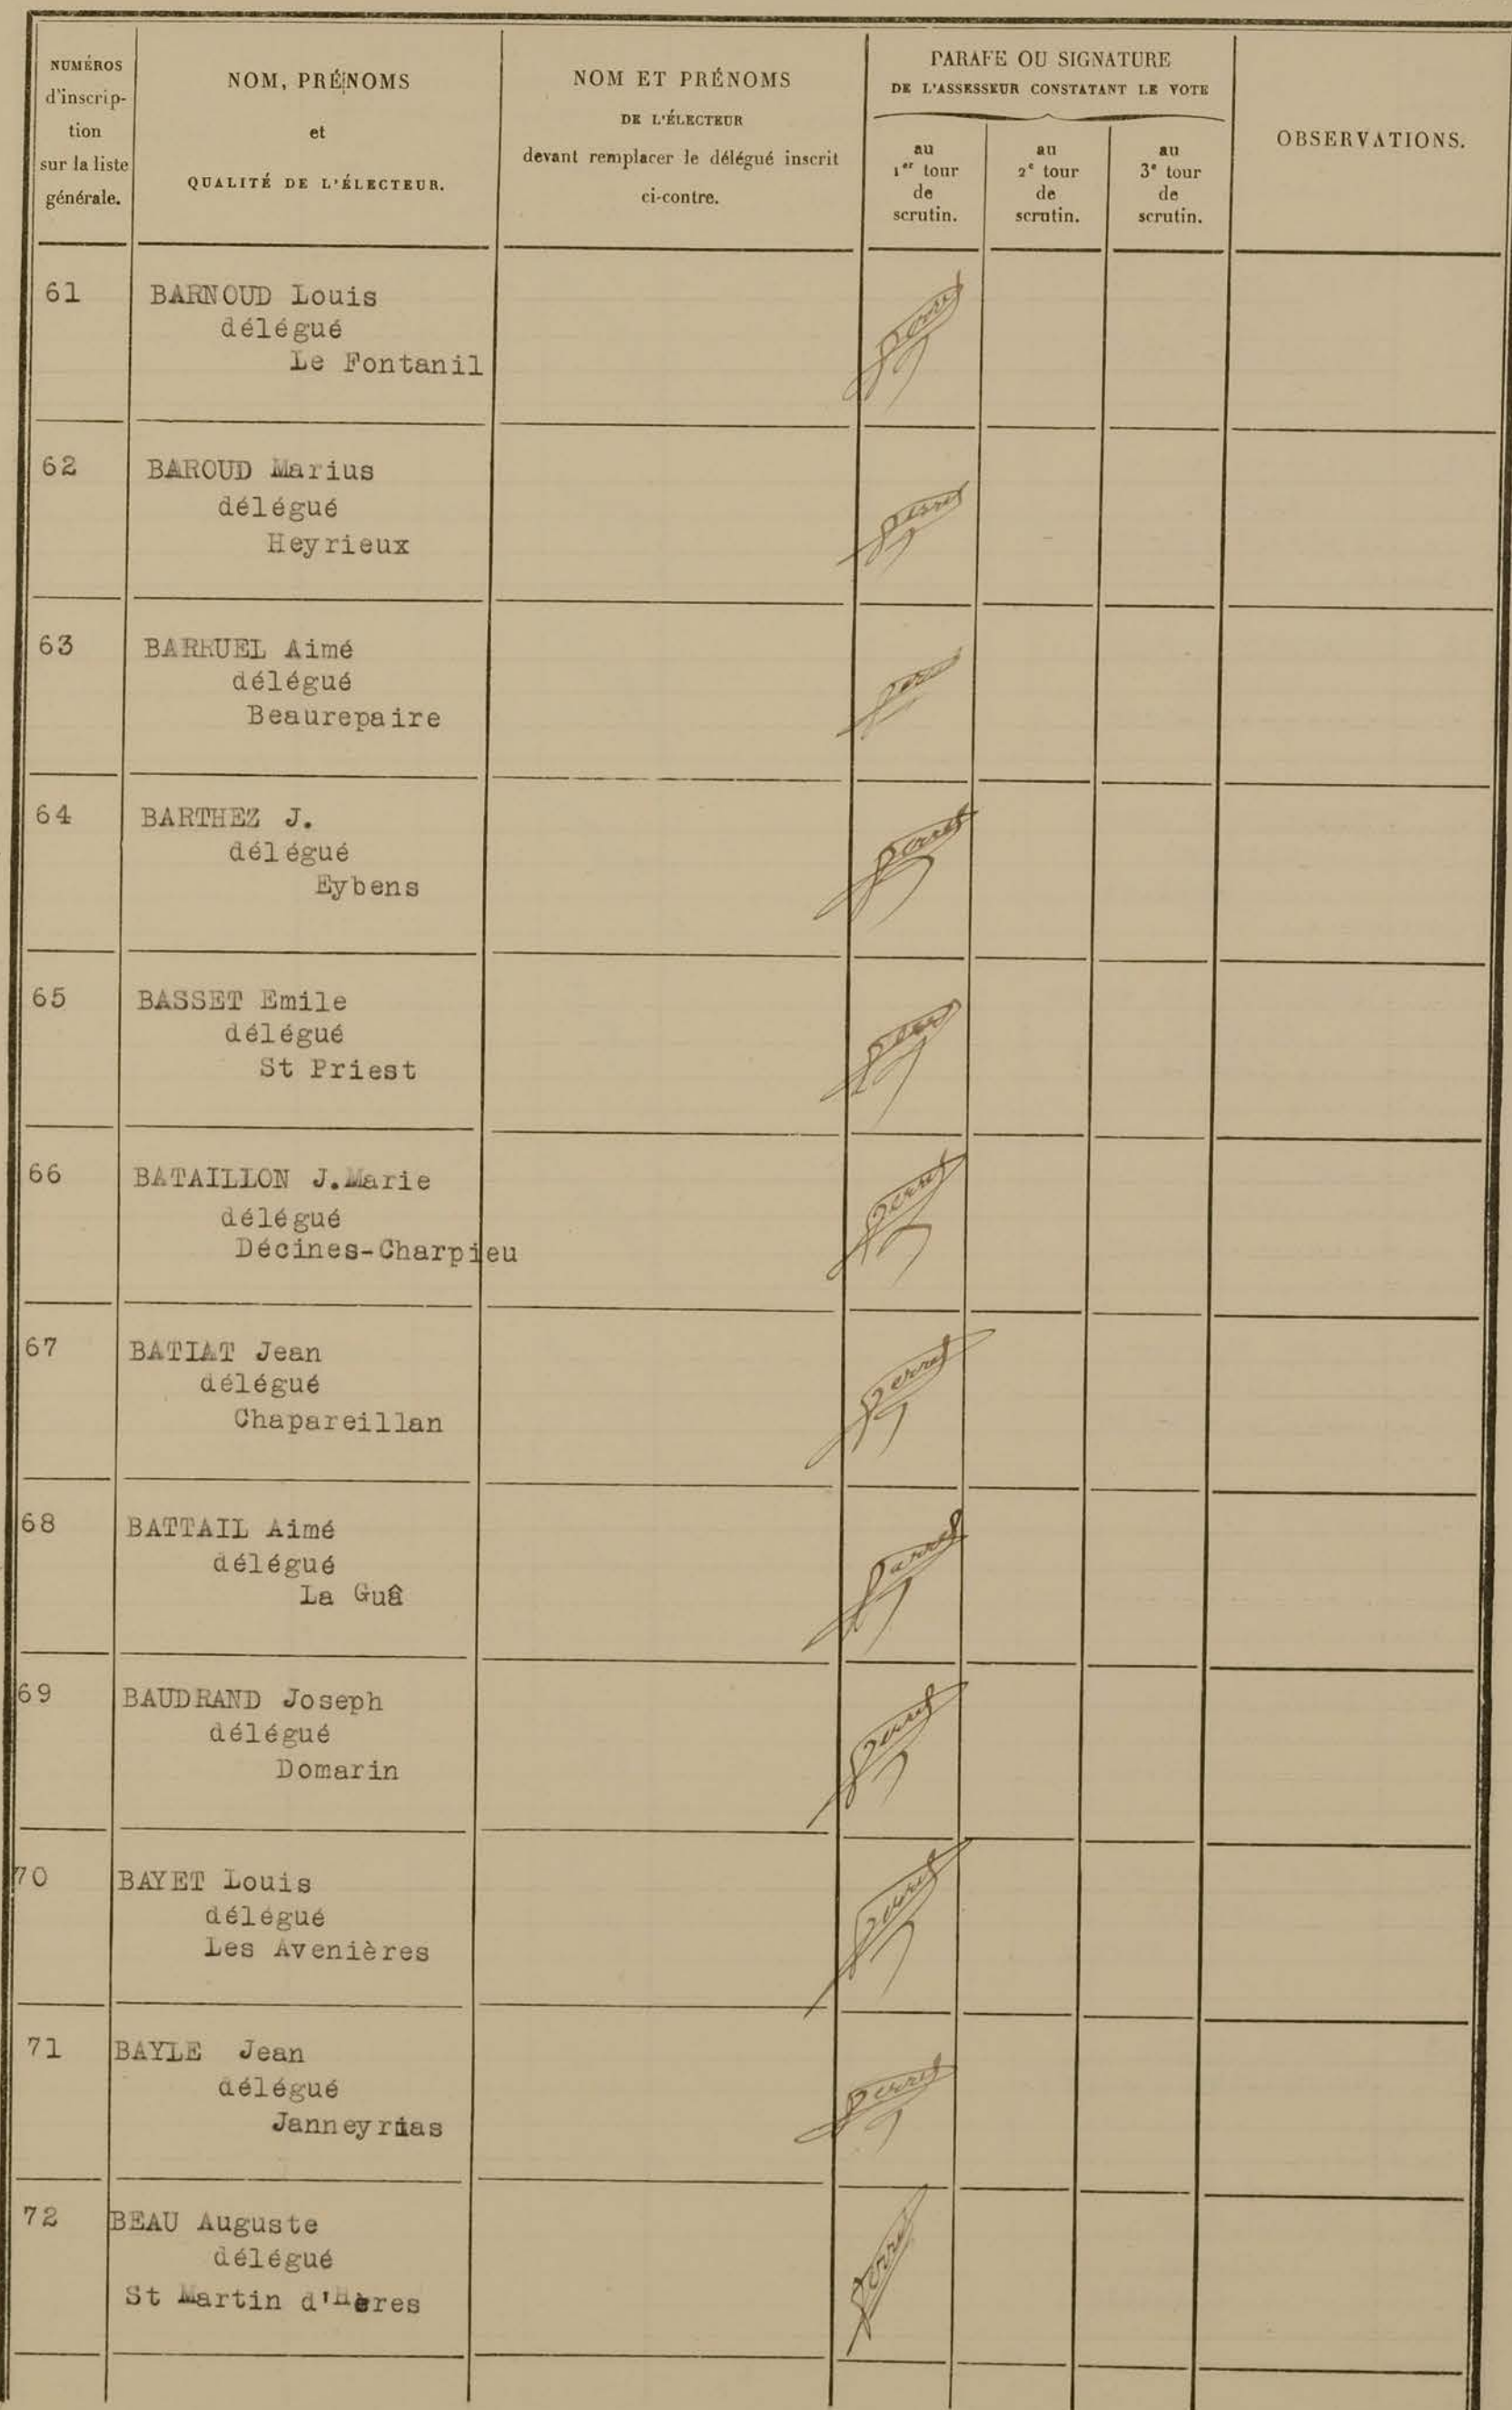 NUMÉROS
d'inscrip-
tion
sur la liste
générale.
NOM, PRÉNOMS
et
QUALITÉ DE L'ÉLECTEUR.
NOM ET PRÉNOMS
DE L'ÉLECTEUR
devant remplacer le délégué inscrit
ci-contre.
PARAFE OU SIGNATURE
DE L'ASSESSEUR CONSTATANT LE VOTE
au
1er tour
de
scrutin.
au
2e tour
de
scrutin.
au
3e tour
de
scrutin.
OBSERVATIONS.
61 BARNOUD Louis
délégué
Le Fontanil
62 BAROUD Marius
délégué
Heyrieux
63 BARRUEL Aimé
délégué
Beaurepaire
64 BARTHEZ J.
délégué
Eybens
65 BASSET Emile
délégué
St Priest
66 BATAILLON J.Marie
délégué
Décines-Charpieu
67 BATIAT Jean
délégué
Chapareillan
68 BATTAIL Aimé
délégué
La Guâ
69 BAUDRAND Joseph
délégué
Domarin
70 BAYET Louis
délégué
Les Avenières
71 BAYLE Jean
délégué
Janneyrias
72 BEAU Auguste
délégué
St Martin d'Hères